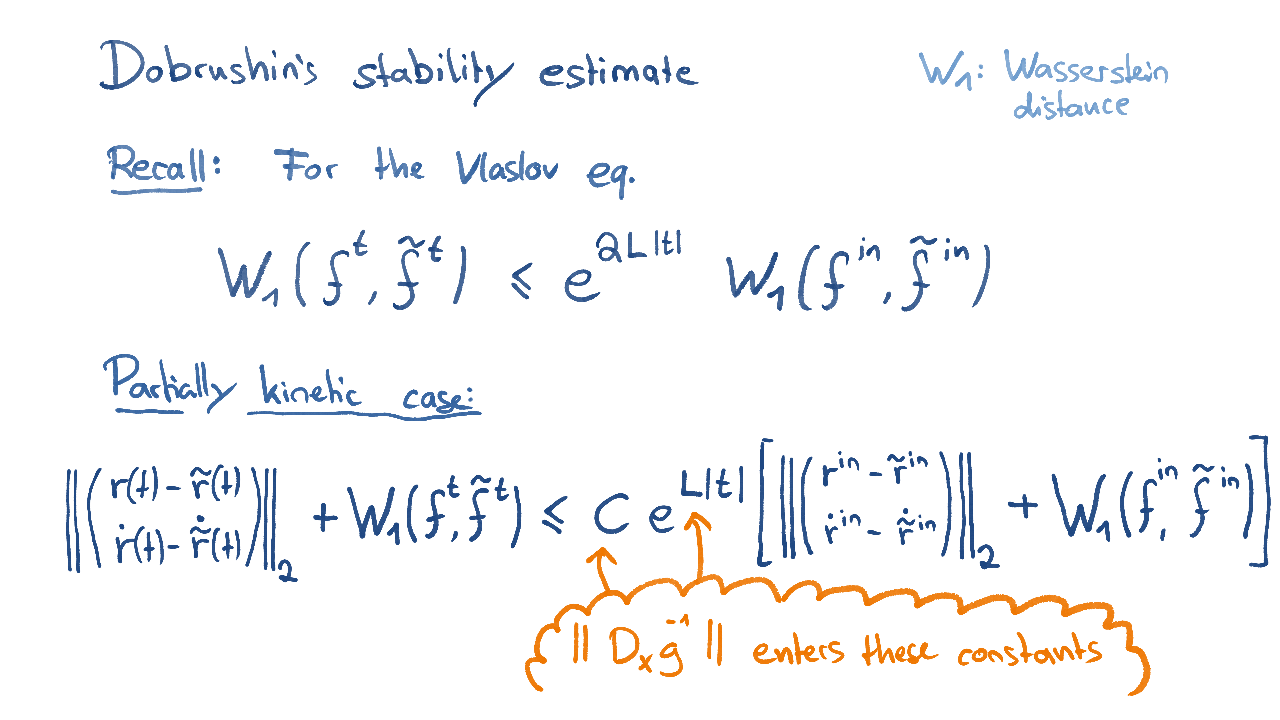 Dobrushin's stability estimate
W₁: Wasserstein
distance
Recall: For the Vlaslov eq.
W₁(fᵗ, f̃ᵗ) ⩽ e^{2L|t|} W₁(f^{in}, f̃^{in})
Partially kinetic case:
‖(r(t) - r̃(t) / ṙ(t) - ṙ̃(t))‖₂ + W₁(fᵗ, f̃ᵗ) ⩽ C e^{L|t|} [‖(r^{in} - r̃^{in} / ṙ^{in} - ṙ̃^{in})‖₂ + W₁(f^{in}, f̃^{in})]
‖ Dₓg⁻¹ ‖ enters these constants